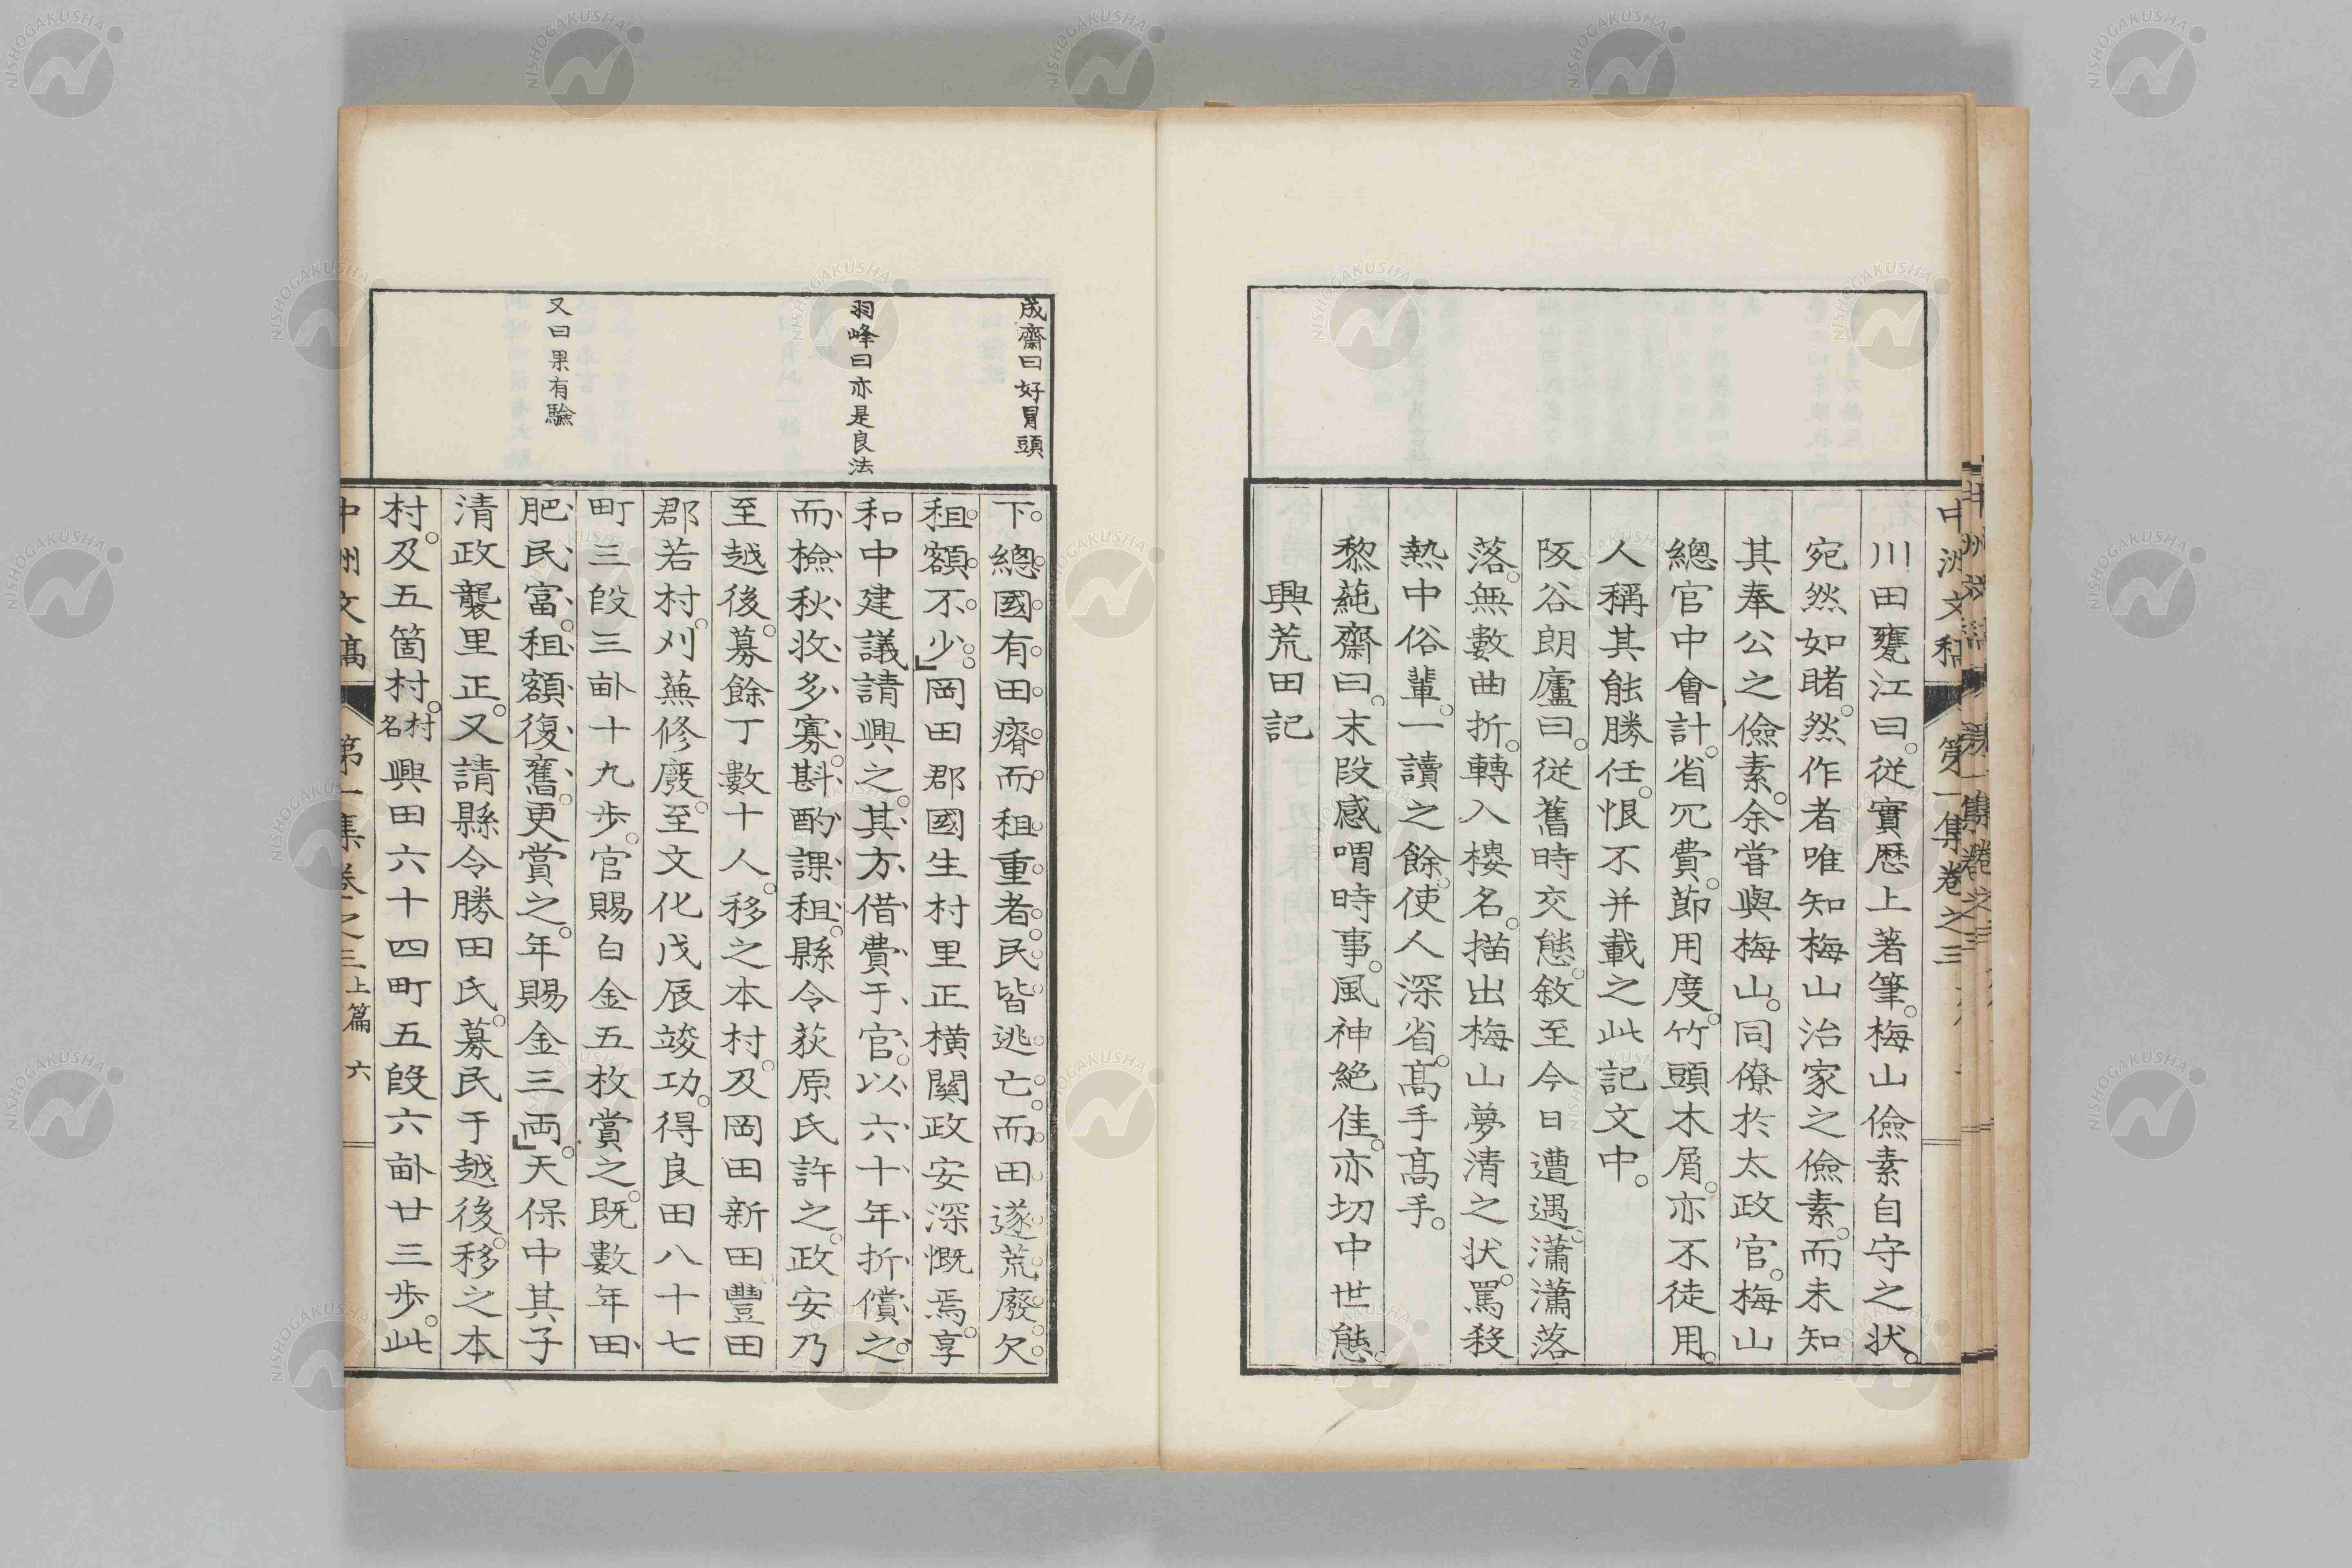 中洲文稿 第一集卷之三
川田甕江曰。從實歷上著筆。梅山儉素自守之状。
宛然如睹。然作者唯知梅山治家之儉素。而未知
其奉公之儉素。余嘗與梅山。同僚於太政官。梅山
總官中會計。省冗費。節用度。竹頭木屑。亦不徒用。
人稱其能勝任。恨不并載之此記文中。
阪谷朗廬曰。從舊時交態。敘至今日遭遇。瀟瀟落
落。無數曲折。轉入樓名。描出梅山夢清之状。罵殺
熱中俗輩。一讀之餘。使人深省。髙手髙手。
黎蒓齋曰。末段感喟時事。風神絶佳。亦切中世態。
興荒田記
成齋曰好冒頭
羽峰曰亦是良法
又曰果有驗
下。總國有田瘠而租重者。民皆逃亡。而田遂荒廢欠
租額不少。」岡田郡國生村里正横關政安深慨焉。享
和中建議請興之。其方借費于官。以六十年折償之。
而檢秋收多寡。斟酌課租。縣令荻原氏許之。政安乃
至越後。募餘丁數十人。移之本村。及岡田新田豐田
郡若村。刈蕪修廢。至文化戊辰竣功。得良田八十七
町三段三畝十九歩。官賜白金五枚賞之。既數年田
肥民富。租額復舊。更賞之。年賜金三兩。」天保中其子
清政襲里正。又請縣令勝田氏。募民于越後。移之本
村。及五箇村。村名興田六十四町五段六畝廿三歩。此
中洲文稿 第一集卷之三上篇 六